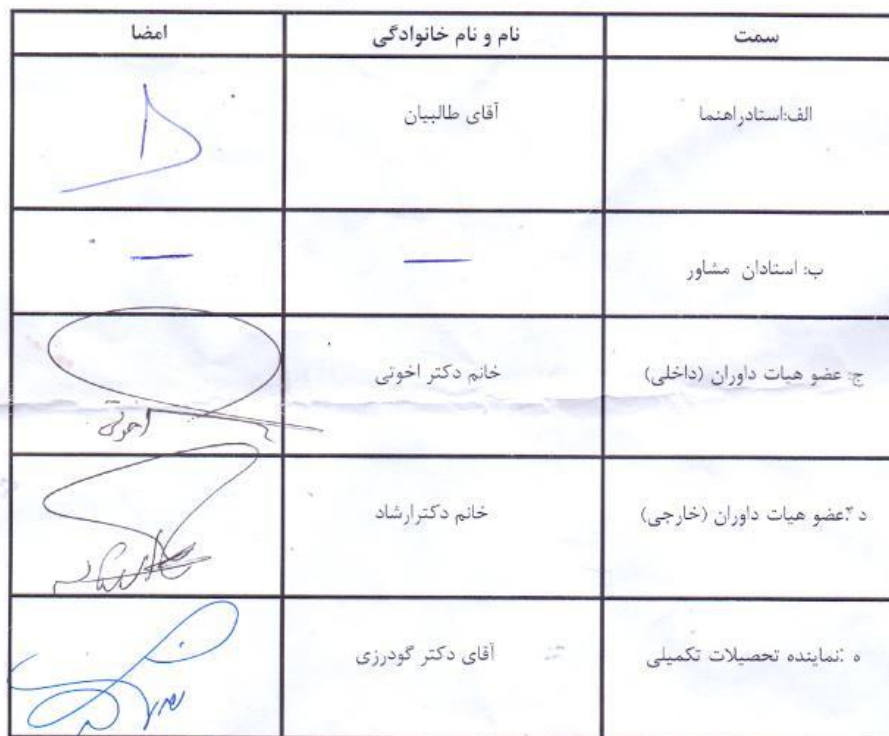 سمت نام و نام خانوادگی امضا
الف:استادراهنما آقای طالبیان
ب: استادان مشاور
ج: عضو هیات داوران (داخلی) خانم دکتر اخوتی
اخوتی
د :عضو هیات داوران (خارجی) خانم دکترارشاد
ه :نماینده تحصیلات تکمیلی آقای دکتر گودرزی